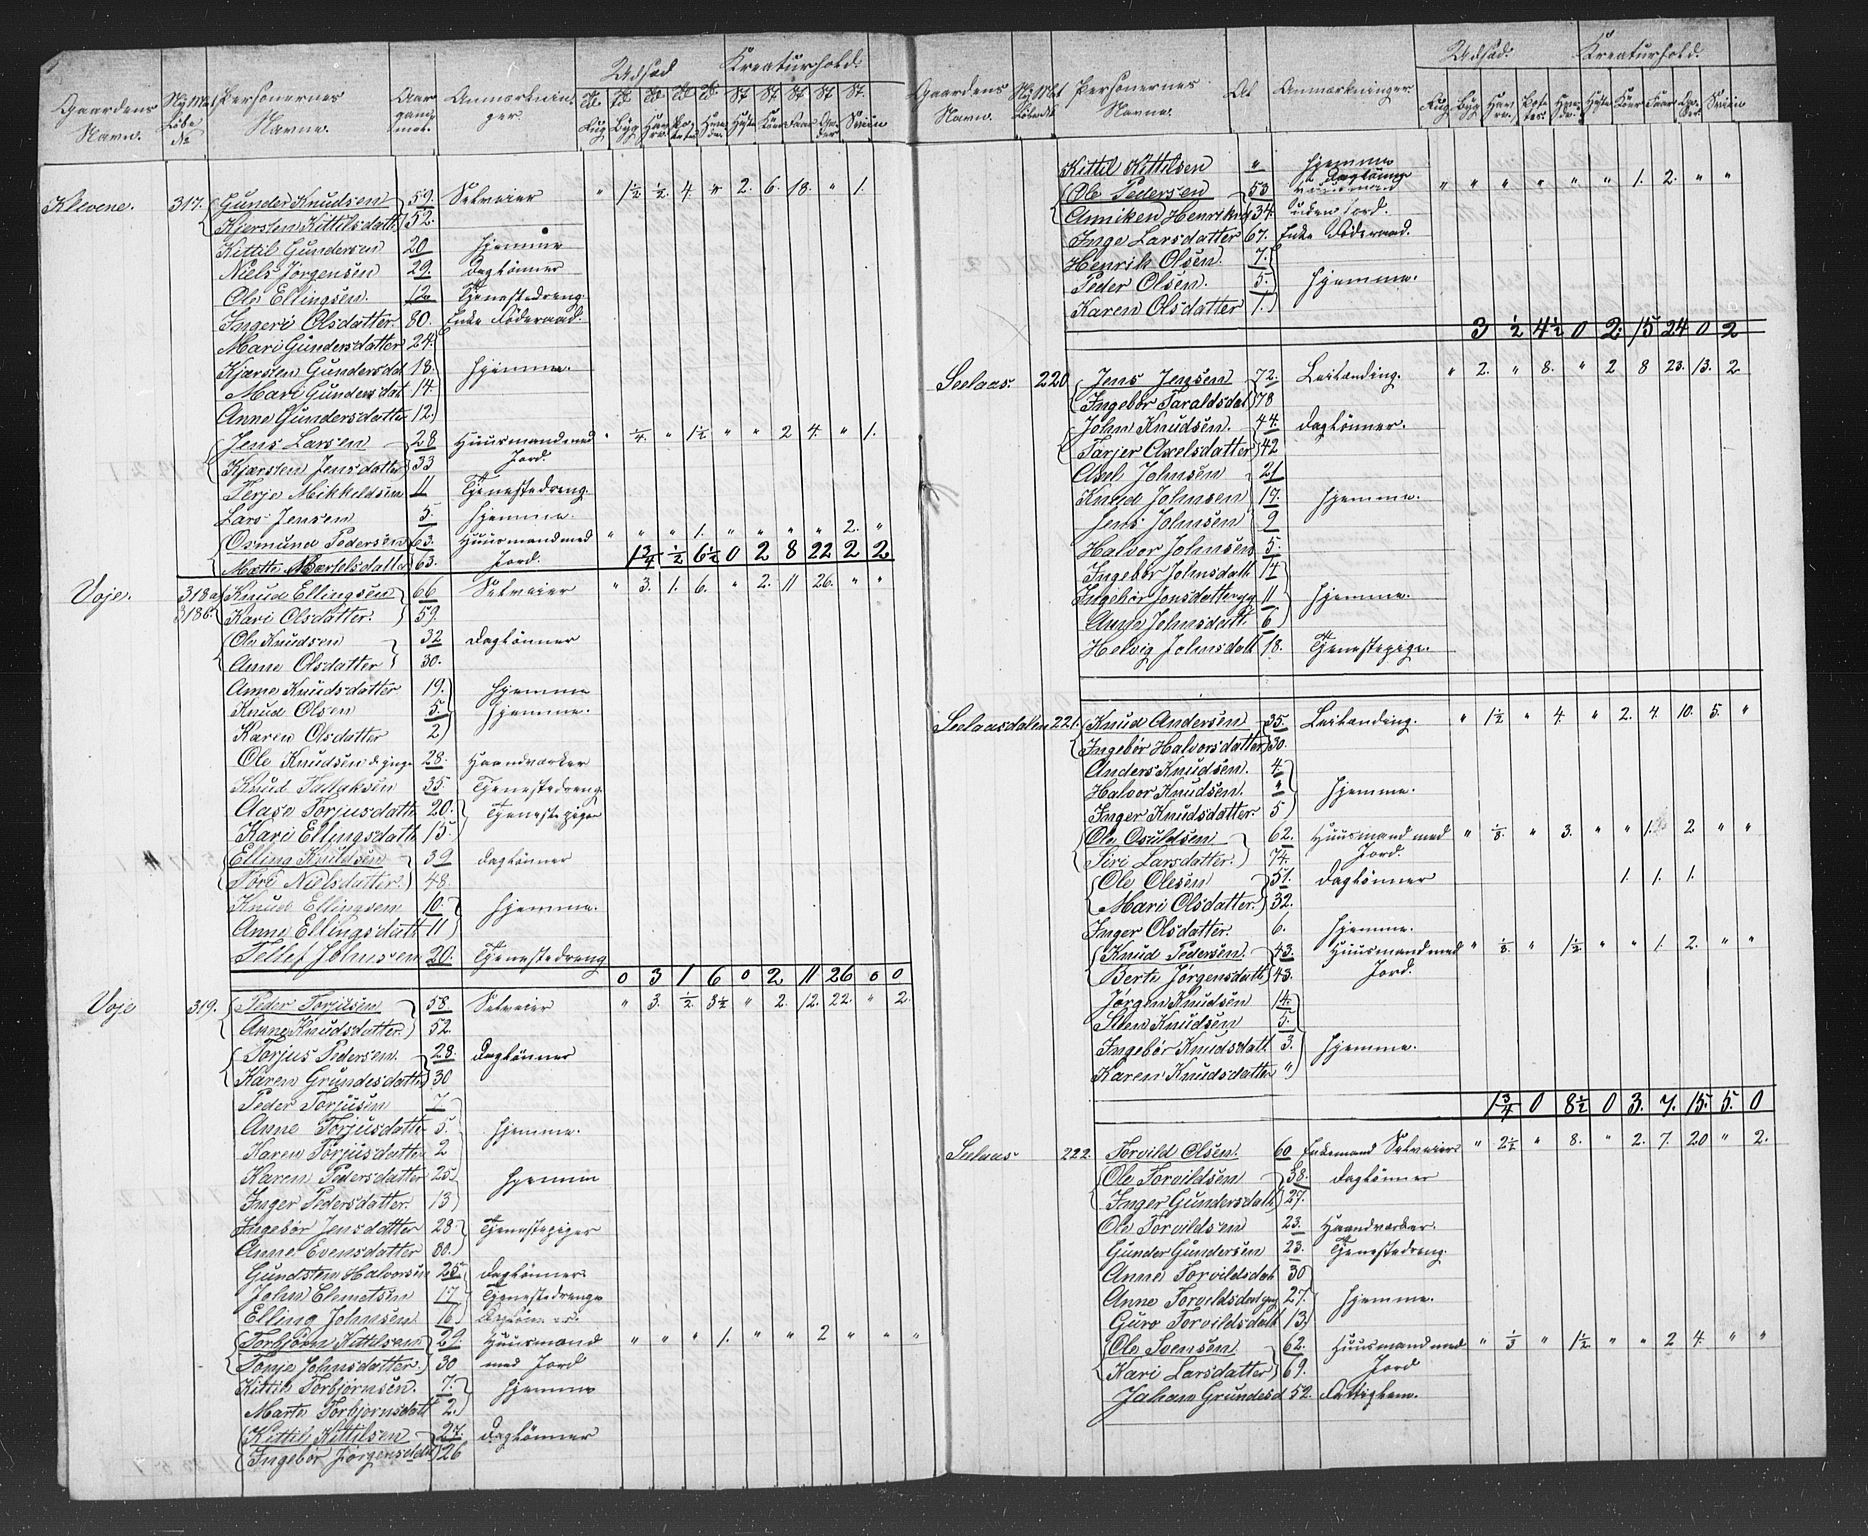 Gaardens Navn. Ny Mat Løbe No Personernes Navne. Anmærkninger. Udsæd Kreaturhold.
Rug Byg Havre Heste Køer Faar Sviin
Klevene. 317. Gunder Knudsen 59. Selveier " 1½ ½ 4 " 2. 6. 18. " 1.
Kjersten Kittilsdatt. 52.
Kittil Gundersen 20 hjemme
Niels Jørgensen 29. Daglønner
Ole Ellingsen. 12 Tjenestedreng.
Ingeri Olsdatter. 80. Enke Føderaad.
Mari Gundersdatter 24.
Kjærsten Gundersdat. 18. hjemme.
Mari Gundersdat 14.
Anne Gundersdatter 12.
Jens Larsen 28 Huusmand med Jord. " ¼. " 1½ " " 2 4. " 1.
Kjærsten Jensdatter 33
Terje Mikkeldsen 11 Tjenestedreng.
Lars Jensen 5. hjemme.
Osmund Pedersen 63. Huusmand med Jord. " " " 1. " " " " 2. "
Mætte Mærtelsdatter 63. 1¾ ½ 6½ 0 2 8 22 2 2
Voje. 318a Knud Ellingsen 66 Selveier " 3. 1. 6. " 2. 11 26. " "
318b. Kari Olsdatter. 59.
Ole Knudsen 32 Daglønner
Anne Olsdatter 30.
Anne Knudsdatter 19. hjemme
Knud Olsen 5. hjemme.
Karen Olsdatter 2
Ole Knudsen d. yngr 28. Haandværker
Knud 35. Tjenestedreng
Aase Torjusdatt. 20. Tjenestepiger
Kari Ellingsdatt. 15.
Elling Knudsen 39 Daglønner
Tore Nielsdatter. 48.
Knud Ellingsen 10. hjemme.
Anne Ellingsdatt 11
Tellef Johnsen 20. Tjenestedreng
0 3 1 6 0 2 11 26 0 0
Voje 319. Peder Torjusen 58 Selveier " 3. ½ 3½ " 2. 12. 22. " 2.
Anne Knudsdatter. 52.
Torjus Pedersen. 28. Daglønner
Karen Grundesdatter 30
Peder Torjusen 7.
Anne Torjusdatter 5. hjemme.
Karen Torjusdatter 2
Karen Pedersdatter 25 hjemme
Inger Pedersdatter. 13
Ingebør Jensdatter 28. Tjenestepiger
Anne Evensdatter 30.
Gundsten Halvorsen 25 Daglønner.
John Clemetsen 17 Tjenestedrenge
Elling Johnsen 16
Torbjørn Kittilsen 29. Huusmand med Jord " " " 1. " " 2 " " "
Tonje Johnsdatter. 30
Kittil Torbjørnsen. 7. hjemme
Marte Torbjørnsdatt 2.
Kittil Kittilsen 27. Daglønner
Ingebør Jørgensdatt 26
Gaardens Navn. Personernes Navne. Al Anmærkninger Udsæd. Kreaturhold.
Rug Byg Havre Potetes Heste Køer Faar Sviin
Kittil Kittilsen " hjemme
Ole Pedersen 53 Dagløn huusmand uden Jord. " " " " " " 1. 2. " "
Anniken Henriksd 34.
Inge Larsdatter 67. Enke Føderaad.
Henrik Olsen. 7.
Peder Olsen. 5. hjemme.
Karen Olsdatter 1.
3 ½ 4½ 0 2. 15 24 0 2
Seelaas. 220 Jens Jensen 72. Leilænding. " 2. " 8. " 2 8 23. 13. 2
Ingebør Taraldsdat 78
John Knudsen. 44. Daglønner.
Tarjer Axelsdatter 42
Axel Johnsen 21
Knud Johnsen 17. hjemme.
Jens Johnsen 9
Halvor Johnsen 5.
Ingebør Johnsdatt 14
Ingebør Jonsdatter yg 11 hjemme.
Anne Johnsdatt. 6
Helvig Johnsdatt 18. Tjenestepige.
Seelaasdalen 221. Knud Andersen 35. Leilænding. " 1½ " 4 " 2. 4. 10. 5. "
Ingebør Halvorsdatter 30.
Anders Knudsen. 4.
Halvor Knudsen. " hjemme.
Inger Knudsdatter. 5
Ole Osuldsen 62. Huusmand med Jord. " ⅛ " 3. " " 1. 2. " "
Siri Larsdatter. 74.
Ole Olesen 51. Daglønner 1 1. 1.
Mari Olsdatter. 32.
Inger Olsdatter. 6. hjemme.
Knud Pedersen. 43. Huusmand med Jord. " ⅛ " 1½ " " 1. 2. " "
Berte Jørgensdatt. 43.
Jørgen Knudsen 14.
Sten Knudsen 5.
Ingebør Knudsdatt. 3. hjemme.
Karen Knudsdatter "
1¾ 0 8½ 0 3. 7. 15. 5. 0
Selaas 222. Torvild Olsen. 60 Enkemand Selveier " 2½ " 8. " 2. 7. 20 " 2.
Ole Torvildsen 38. Daglønner
Inger Gundersdatt. 27.
Ole Torvildsen 23. Haandværker.
Gunder Gundersen 23. Tjenestedreng.
Anne Torvildsdat 30
Anne Torvildsdat yng 27. hjemme.
Guro Torvildsdatt 13.
Ole Svensen 62. Huusmand med Jord " ⅓ " 1½ " " 2 4. " "
Kari Larsdatter 69.
Johane Grundesd 52. Fattiglem.